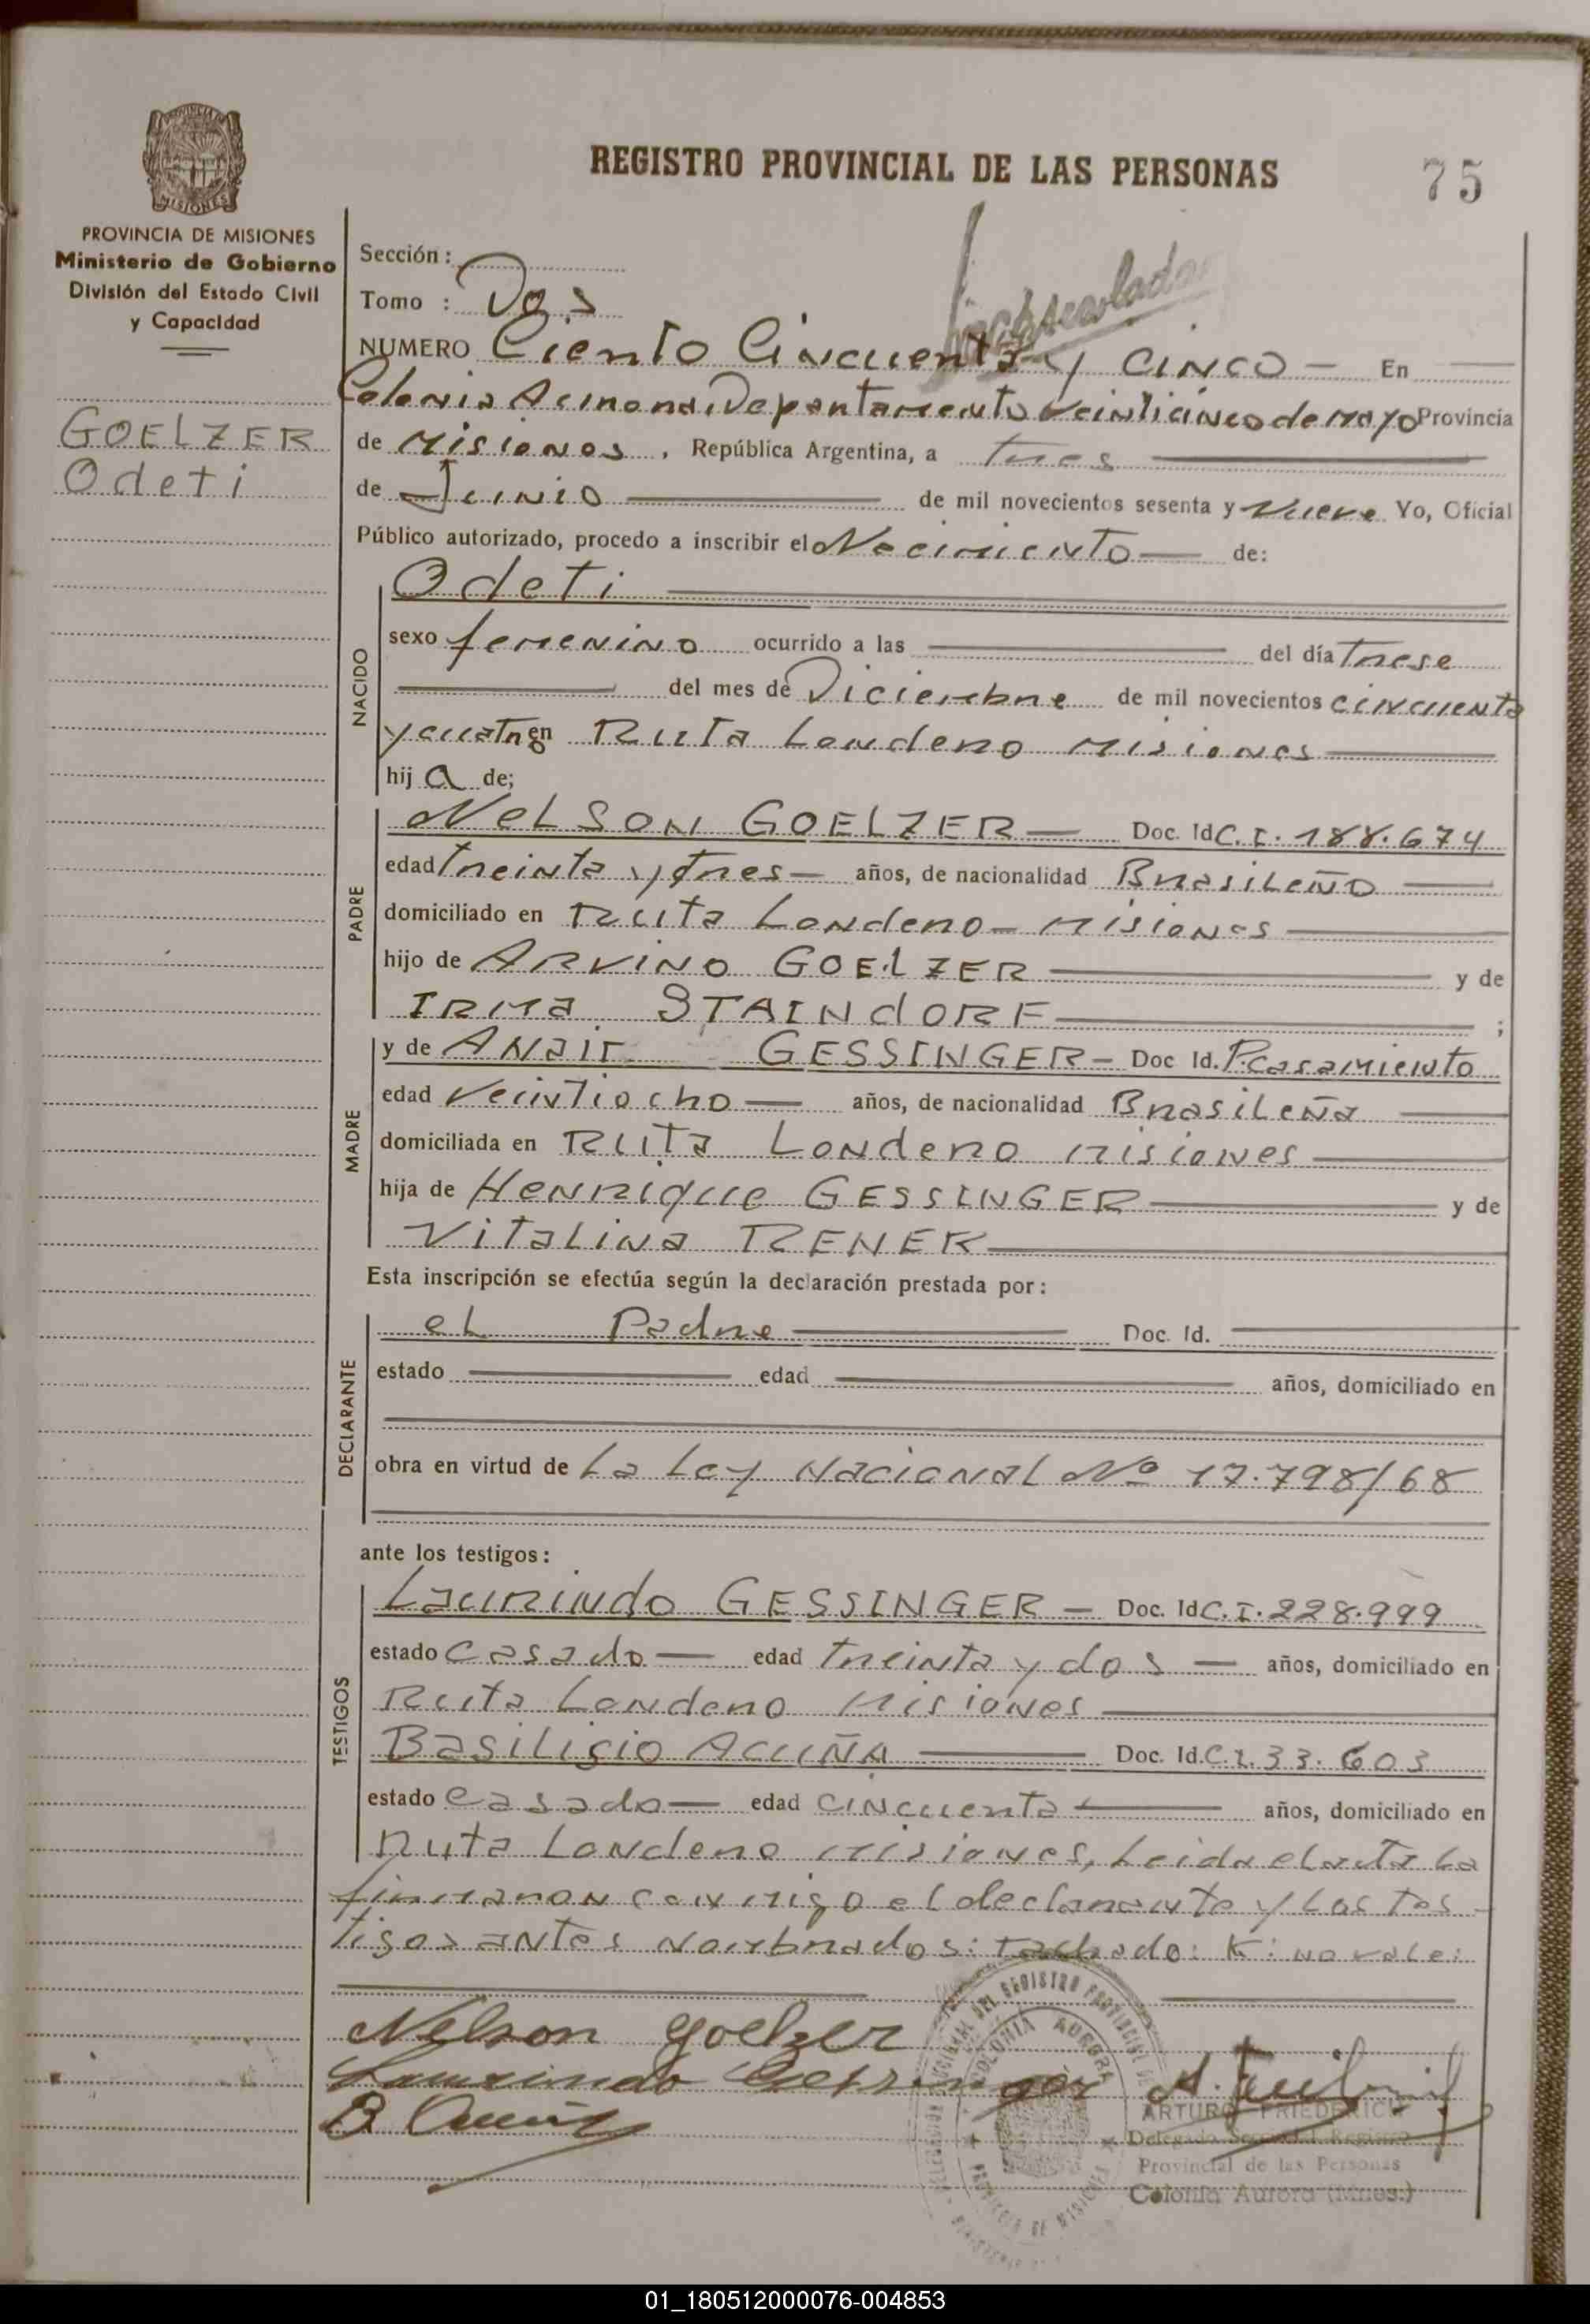 REGISTRO PROVINCIAL DE LAS PERSONAS
75
MISIONES
PROVINCIA DE MISIONES
Ministerio de Gobierno
División del Estado Civil
y Capacidad
GOELZER
Odeti
Sección :
Tomo : Dos
NUMERO Ciento Cincuenta y CINCO — En
Colonia Aurora, Departamento Veinticinco de Mayo Provincia
de Misiones, República Argentina, a tres
de Junio de mil novecientos sesenta y Nueve Yo, Oficial
Público autorizado, procedo a inscribir el Nacimiento de:
NACIDO
Odeti
sexo femenino ocurrido a las del día trese
del mes de Diciembre de mil novecientos cincuenta
y cuatro en Ruta Londero Misiones
hij a de;
PADRE
NELSON GOELZER — Doc. Id C.I. 188.674
edad treinta y tres — años, de nacionalidad BrasiLeÑo
domiciliado en Ruta Londero — Misiones
hijo de ARVINO GOELZER y de
IRMA STAINdORF ;
MADRE
y de ANair GESSINGER — Doc Id. P.casamiento
edad Veintiocho — años, de nacionalidad BrasiLeÑa
domiciliada en Ruta Londero Misiones
hija de Henrique GESSINGER y de
VitaLina RENER
Esta inscripción se efectúa según la declaración prestada por :
DECLARANTE
el Padre Doc. Id.
estado edad años, domiciliado en
obra en virtud de La Ley Nacional Nº 17.798/68
ante los testigos :
TESTIGOS
Laurindo GESSINGER — Doc. Id C.I. 228.999
estado Casado — edad treinta y dos — años, domiciliado en
Ruta Londero Misiones
Basiligio ACUÑA Doc. Id. C.I. 33.603
estado Casado — edad CINcuenta años, domiciliado en
Ruta Londero Misiones, Leida el acta La
firmaron conmigo el declarante y Los tes-
tigos antes Nombrados: tachado: K: no vale:
Nelson Goelzer
Laurindo Gessinger
B Acuña
COLONIA AURORA
PROVINCIA DE MISIONES
ARTURO FRIEDERICH
Delegado Seccional Registro
Provincial de las Personas
Colonia Aurora (Mnes.)
01_180512000076-004853